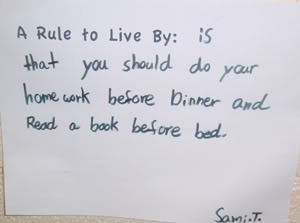 A Rule to Live By: is
that you should do your
homework before Dinner and
Read a book before bed.
Sami.T.